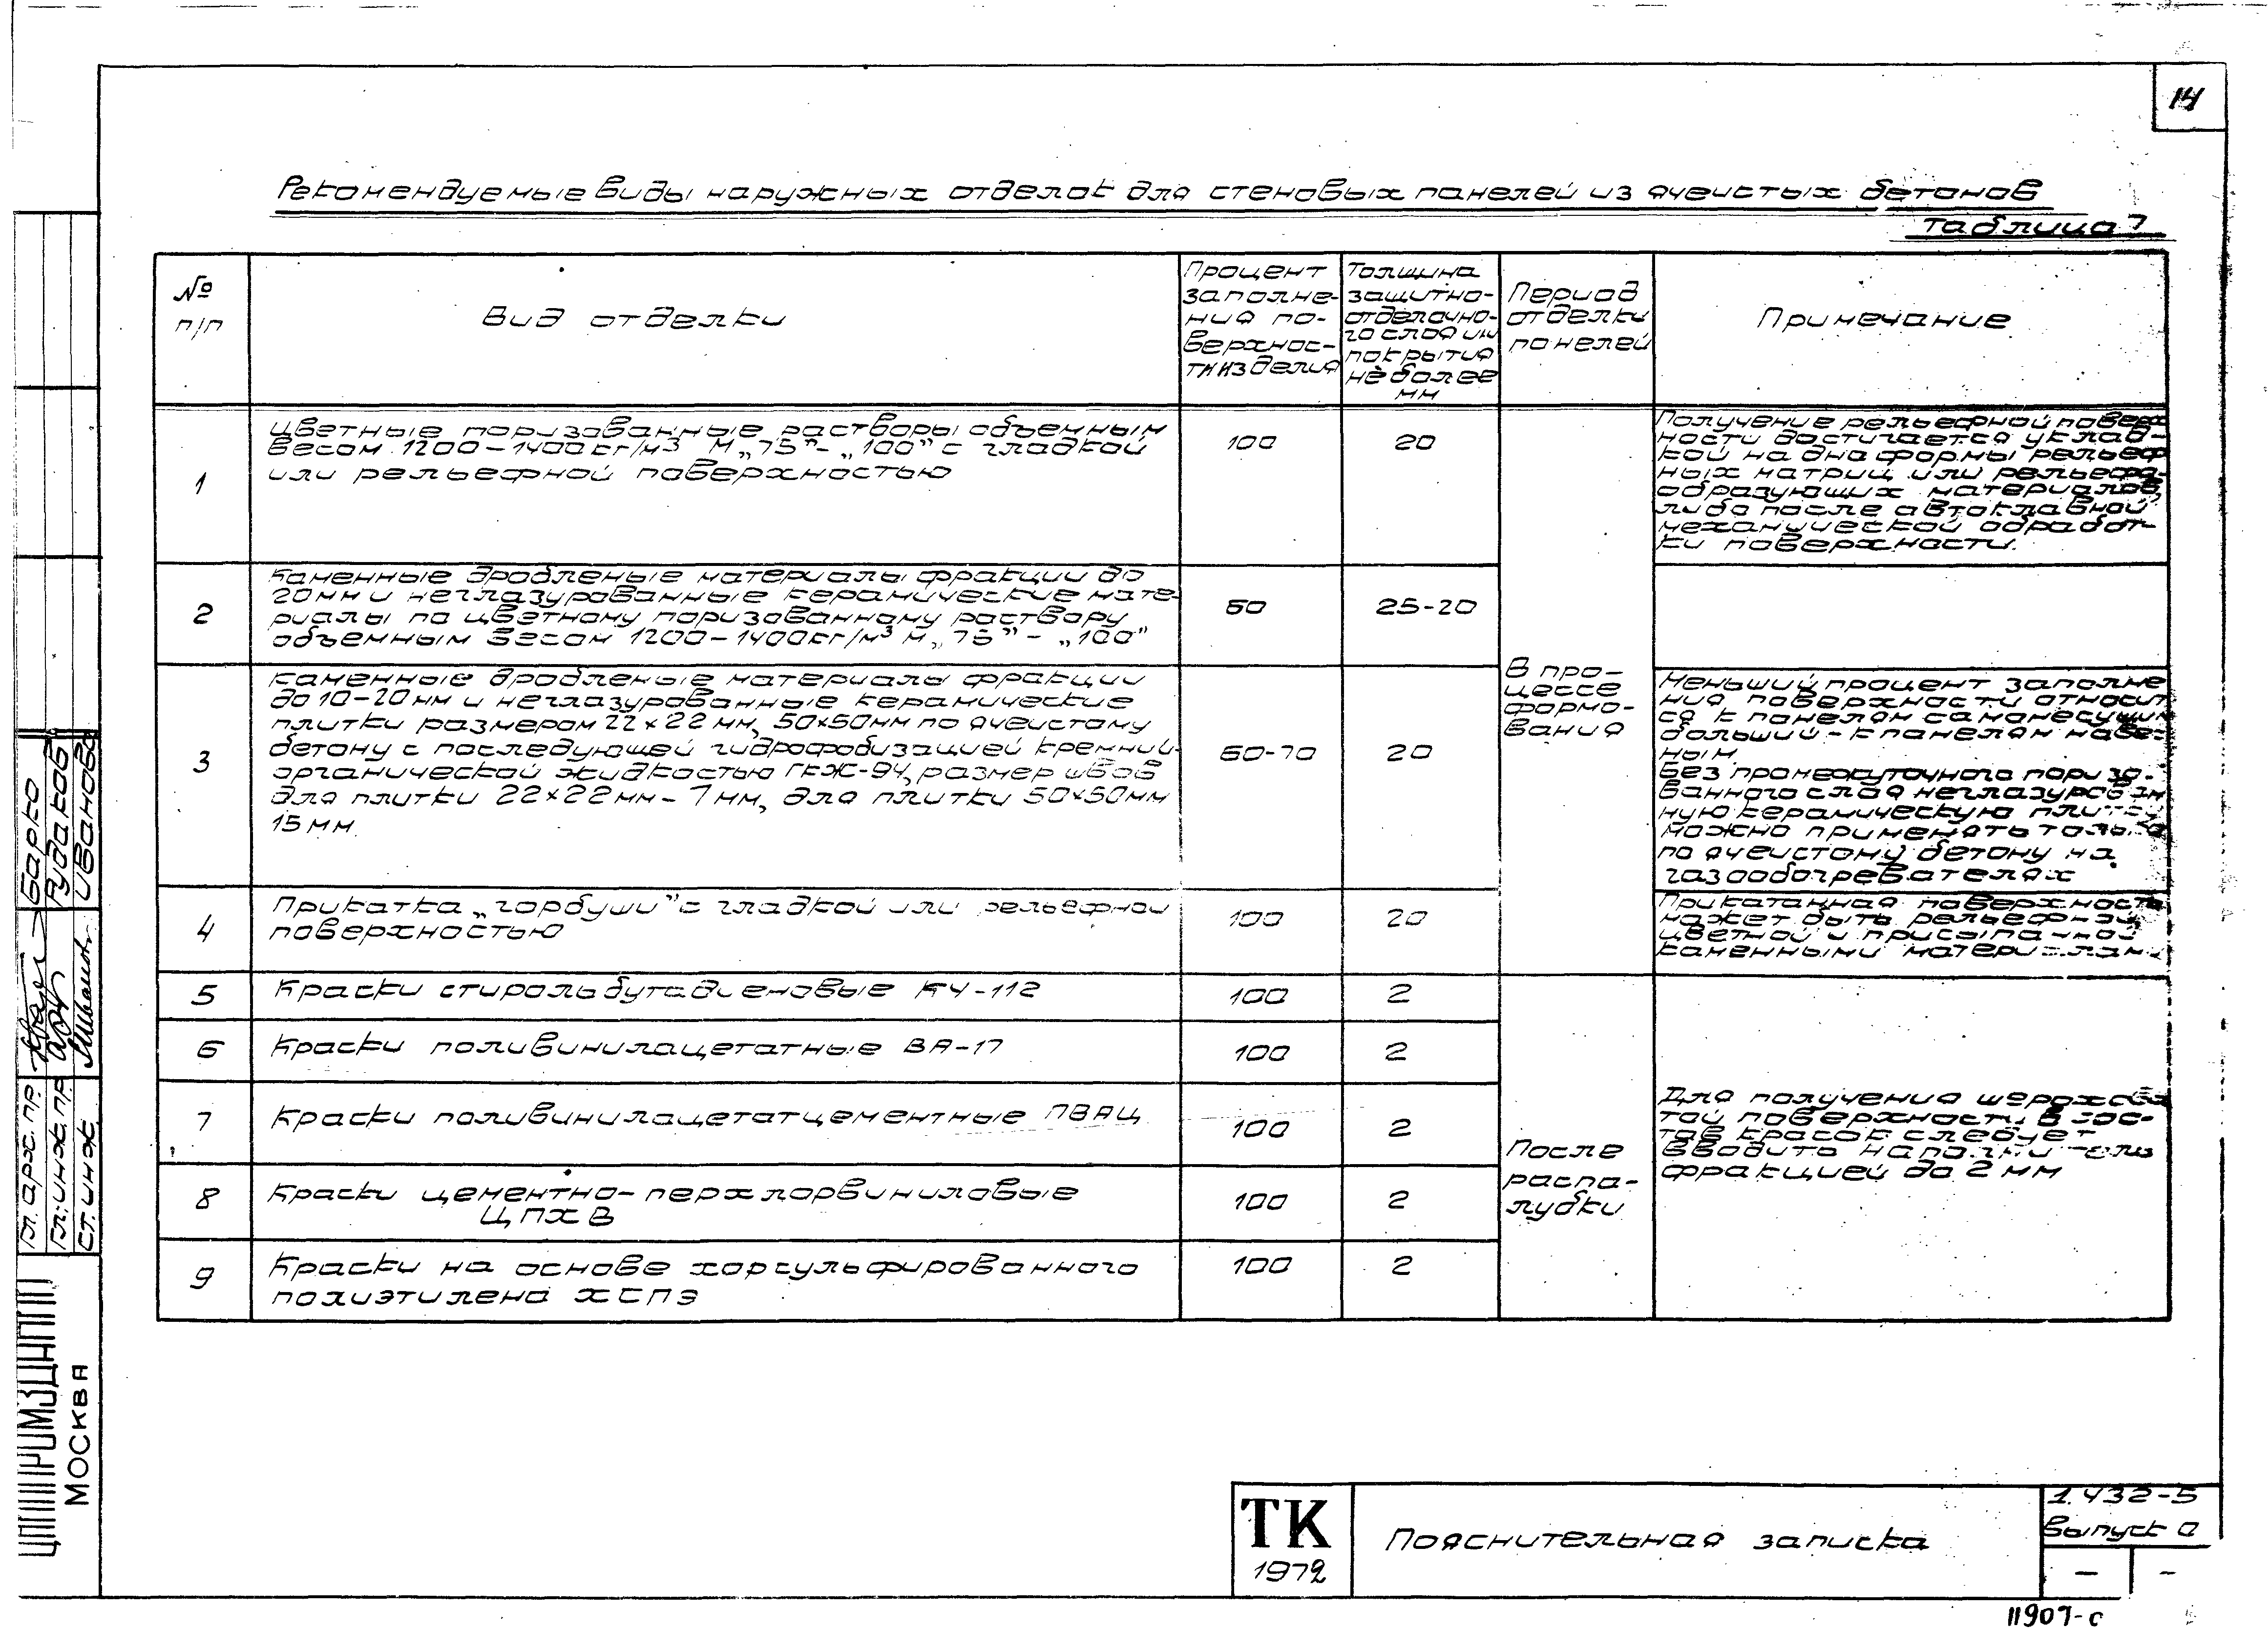 14
Рекомендуемые виды наружных отделок для стеновых панелей из ячеистых бетонов
Таблица 7
№
п/п
Вид отделки
Процент
заполне-
ния по-
верхнос-
ти изделия
Толщина
защитно-
отделочно-
го слоя или
покрытия
не более
мм
Период
отделки
панелей
Примечание
1
Цветные поризованные растворы объемным
весом 1200-1400кг/м³ М„75”-„100” с гладкой
или рельефной поверхностью
100
20
Получение рельефной поверх
ности достигается уклад-
кой на дно формы рельеф
ных матриц или рельефо-
образующих материалов,
либо после автоклавной
механической обработ-
ки поверхности.
2
Каменные дробленые материалы фракции до
20мм и неглазурованные керамические мате-
риалы по цветному поризованному раствору
объемным весом 1200-1400кг/м³ М„75”-„100”
60
25-20
В про-
цессе
формо-
вания
3
Каменные дробленые материалы фракции
до 10-20мм и неглазурованные керамические
плитки размером 22×22мм, 50×50мм по ячеистому
бетону с последующей гидрофобизацией кремний-
органической жидкостью ГКЖ-94, размер швов
для плитки 22×22мм-7мм, для плитки 50×50мм
15мм.
60-70
20
Меньший процент заполне
ния поверхности относит
ся к панелям самонесущим
больший-к панелям навес-
ным.
Без промежуточного поризо-
ванного слоя неглазурован
ную керамическую плитку
можно применять только
по ячеистому бетону на
газообогревателях
4
Прикатка „горбуши” с гладкой или рельефной
поверхностью
100
20
Прикатанная поверхность
может быть рельефной,
цветной и присыпанной
каменными материалам
5
Краски стиролбутадиеновые КЧ-112
100
2
6
Краски поливинилацетатные ВА-17
100
2
7
Краски поливинилацетатцементные ПВАЦ
100
2
8
Краски цементно-перхлорвиниловые
ЦПХВ
100
2
9
Краски на основе хорсульфированного
полиэтилена ХСПЭ
100
2
После
распа-
лубки
Для получения шерохова
той поверхности в сос-
тав красок следует
вводить наполнитель
фракцией до 2 мм
Гл. арх. пр.
Барко
Гл. инж. пр.
Рудаков
Ст. инж.
Иванова
ЦНИИПРОМЗДАНИЙ
МОСКВА
ТК
1972
Пояснительная записка
1.432-5
Выпуск 0
-
-
11907-с